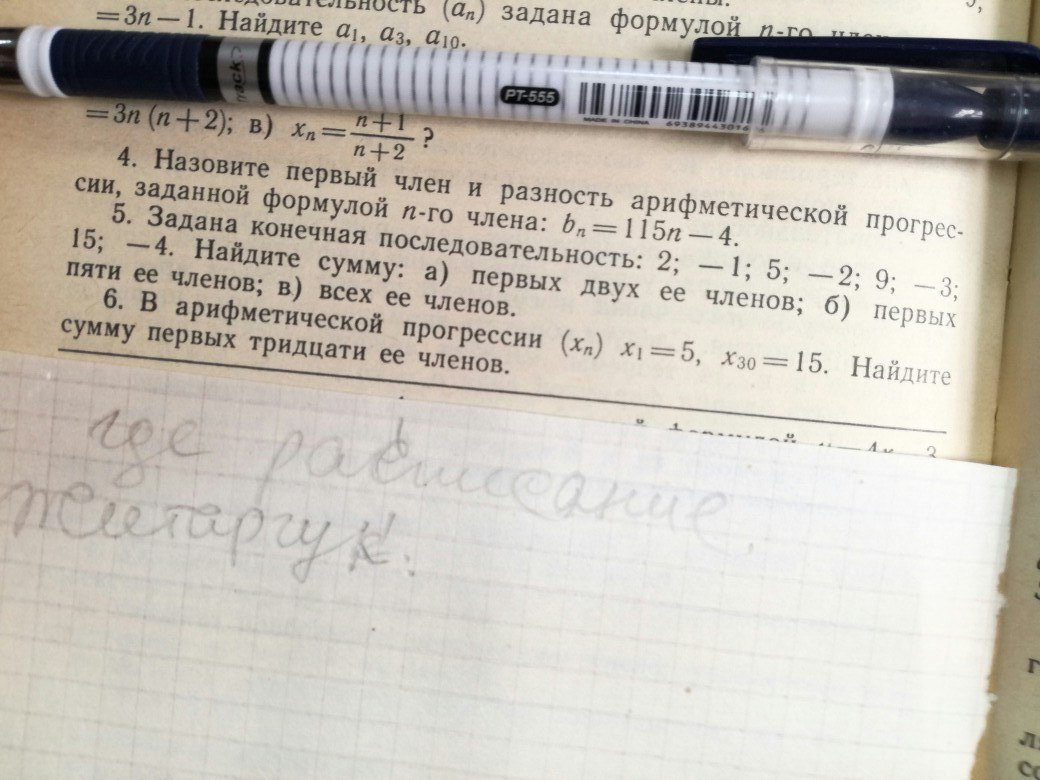 последовательность (aₙ) задана формулой n-го
=3n−1. Найдите a₁, a₃, a₁₀.
Track
PT-555
MADE IN CHINA
=3n (n+2); в) xₙ = (n+1)/(n+2) ?
4. Назовите первый член и разность арифметической прогрес-
сии, заданной формулой n-го члена: bₙ=115n−4.
5. Задана конечная последовательность: 2; −1; 5; −2; 9; −3;
15; −4. Найдите сумму: а) первых двух ее членов; б) первых
пяти ее членов; в) всех ее членов.
6. В арифметической прогрессии (xₙ) x₁=5, x₃₀=15. Найдите
сумму первых тридцати ее членов.
где расписание